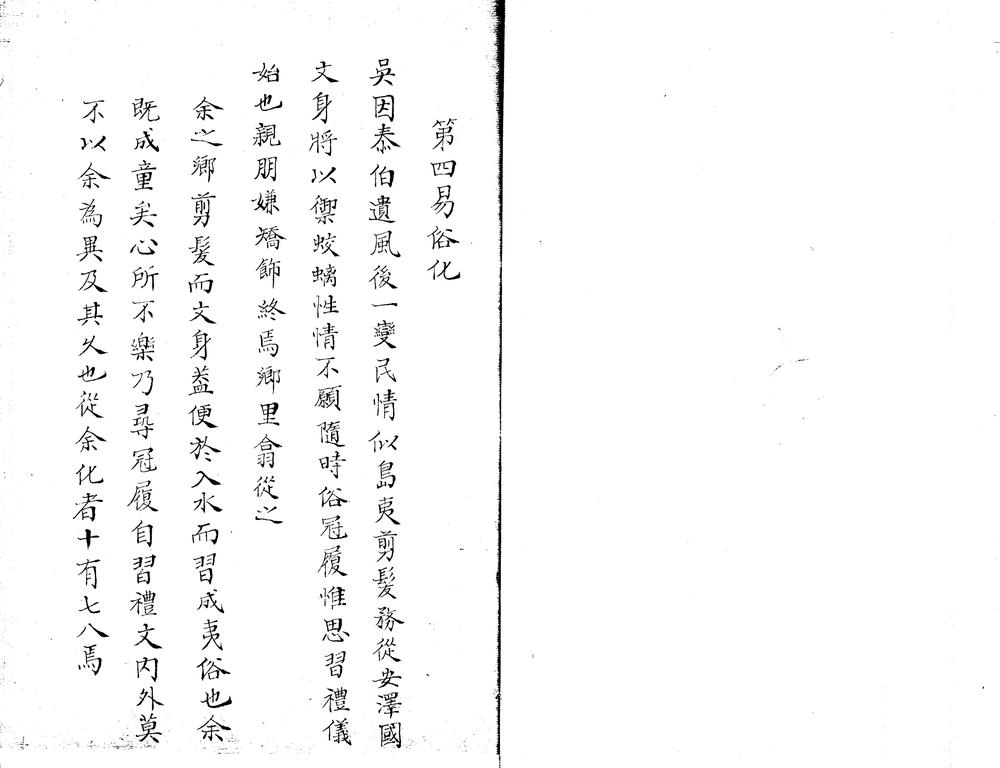 第四易俗化
吳因泰伯遺風後一變民情似島夷剪髮務從安澤國
文身將以禦蛟螭性情不願隨時俗冠履惟思習禮儀
始也親朋嫌矯飾終焉鄉里翕從之
余之鄉剪髮而文身盖便於入水而習成夷俗也余
既成童矣心所不樂乃尋冠履自習禮文內外莫
不以余為異及其久也從余化者十有七八焉